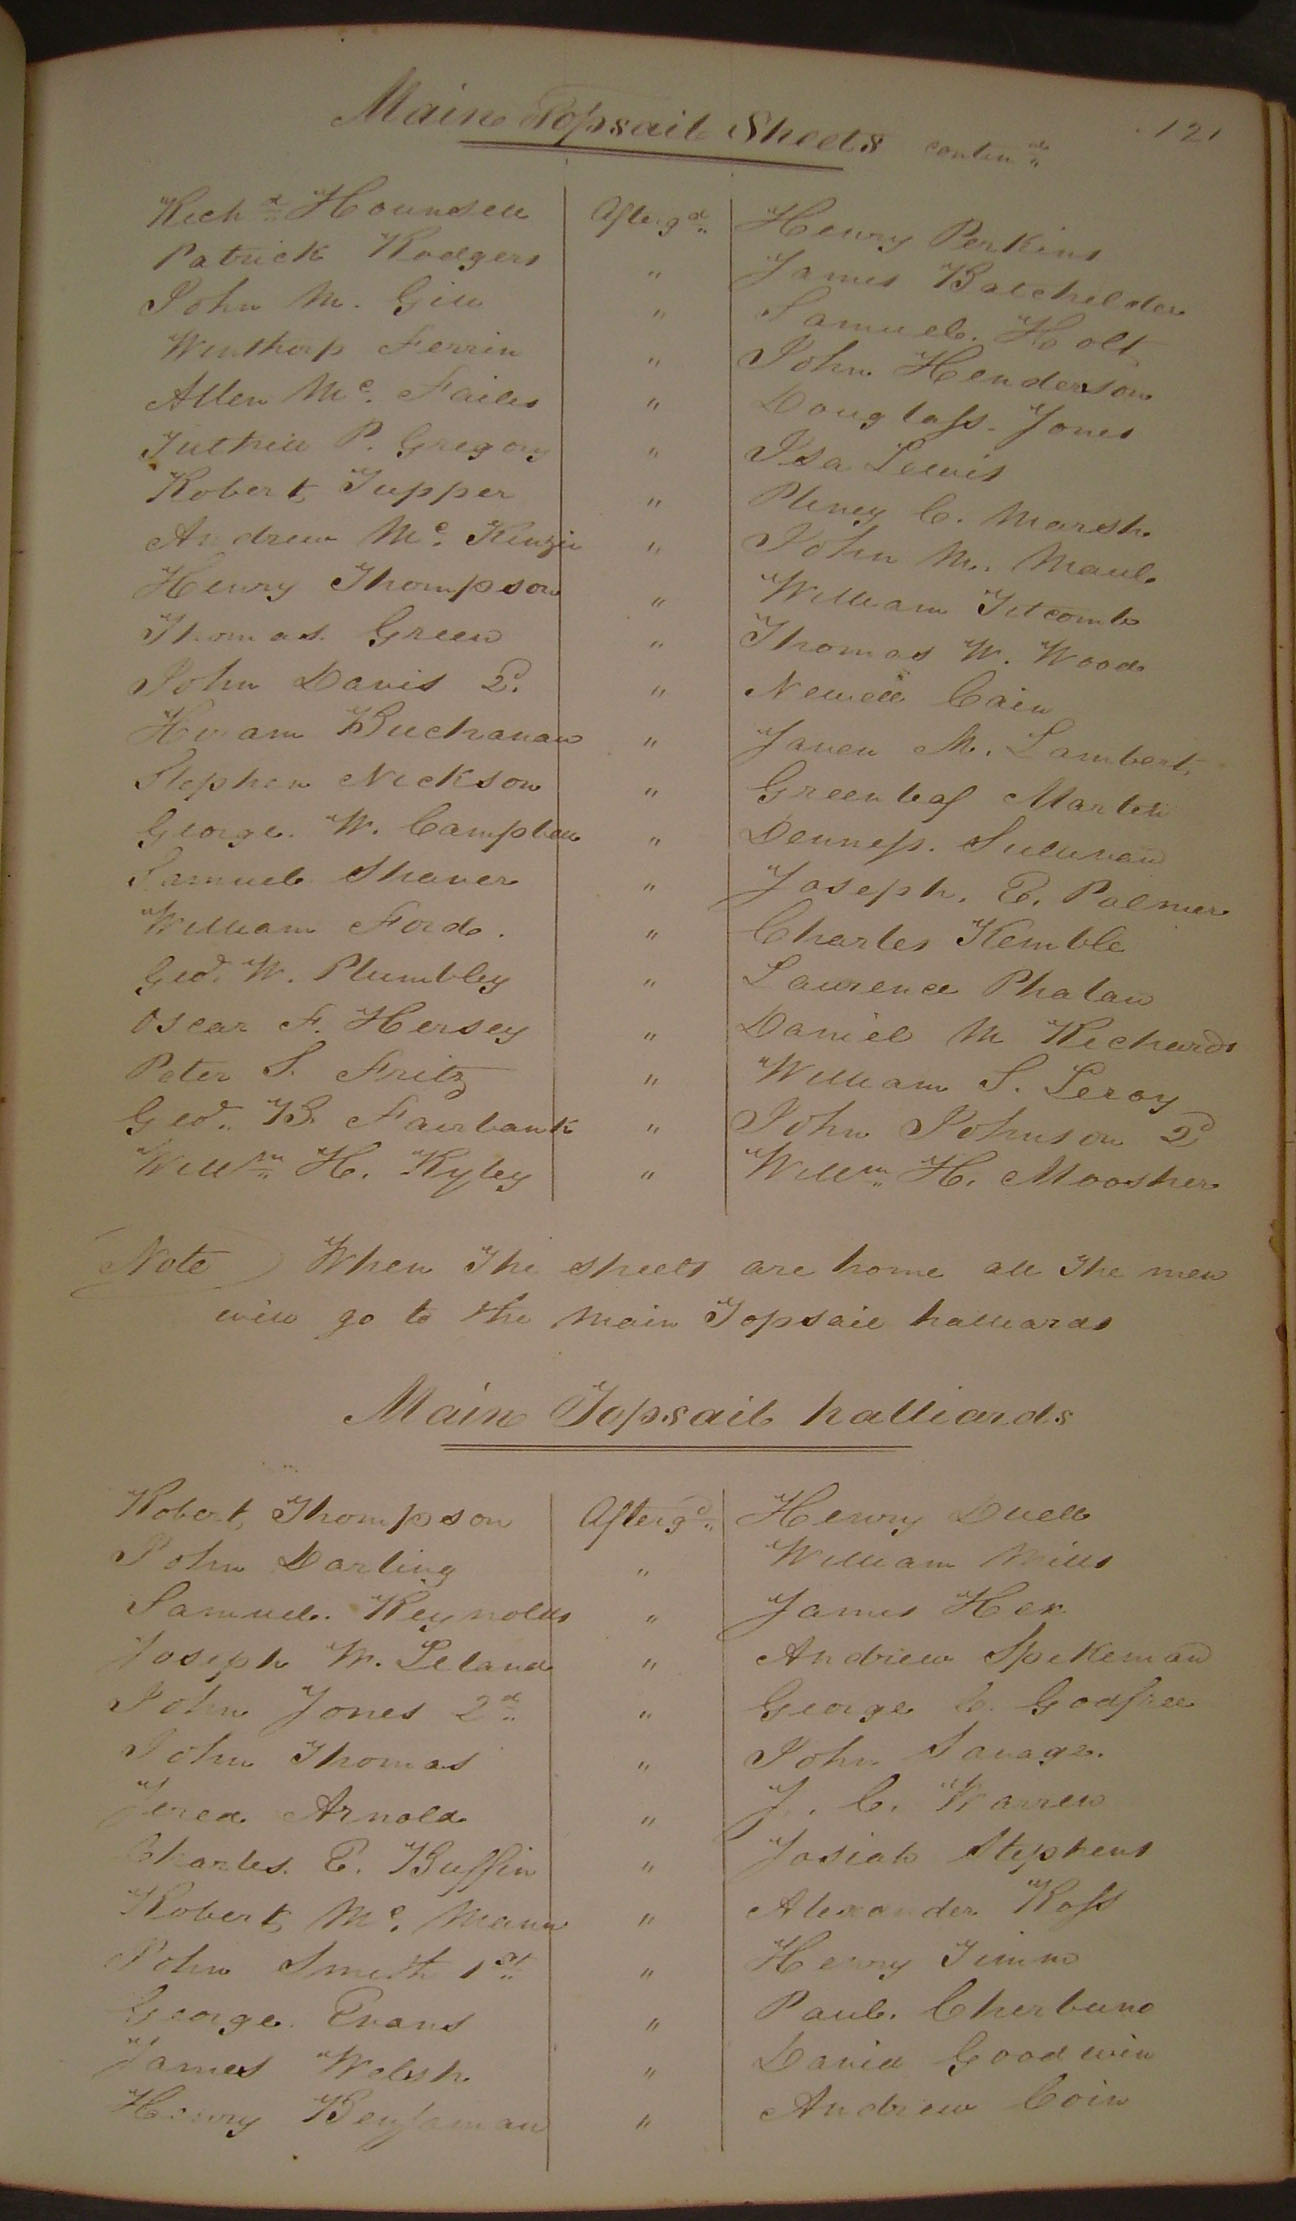 121
Main Topsail Sheets contin'd
Rich'd Hounsell Afterg'd Henry Perkins
Patrick Rodgers " James Batchelder
John M. Gill " Samuel Holt
Winthorp Ferrin " John Henderson
Allen Mc. Failes " Douglass Jones
Tuthill P. Gregory " Isa Lewis
Robert Tupper " Pliney C. Marsh
Andrew Mc. Kenzie " John M. Maul
Henry Thompson " William Titcomb
Thomas Green " Thomas W. Wood
John Davis 2d " Newell Cain
Hiram Buchanan " M. Lambert
Stephen Nickson " Greenleaf Martin
George W. Campbell " Denness Sullivan
Samuel Shaver " Joseph E. Palmer
William Ford. " Charles Kemble
Geo. W. Plumbley " Laurence Phalan
Oscar F. Hersey " Daniel M Richards
Peter S. Fritz " William S. Leroy
Geo. B. Fairbank " John Johnson 2d
Willm H. Kyley " Willm H. Moosher
Note) When The sheets are home all The men
will go to the Main Topsail halliards
Main Topsail halliards
Robert Thompson Afterg'd Henry Duell
John Darling " William Mills
Samuel Reynolds " James Hex
Joseph W. Leland " Andrew Spikeman
John Jones 2d " George C. Godfree
John Thomas " John Savage
Jered Arnold " J. C. Warren
Charles E. Buffin " Josiah Stephens
Robert Mc. Mann " Alexander Ross
John Smith 1st " Henry Timm
George Evans " Paul Cherbuno
James Welsh " David Goodwin
Henry Benjaman " Andrew Coin